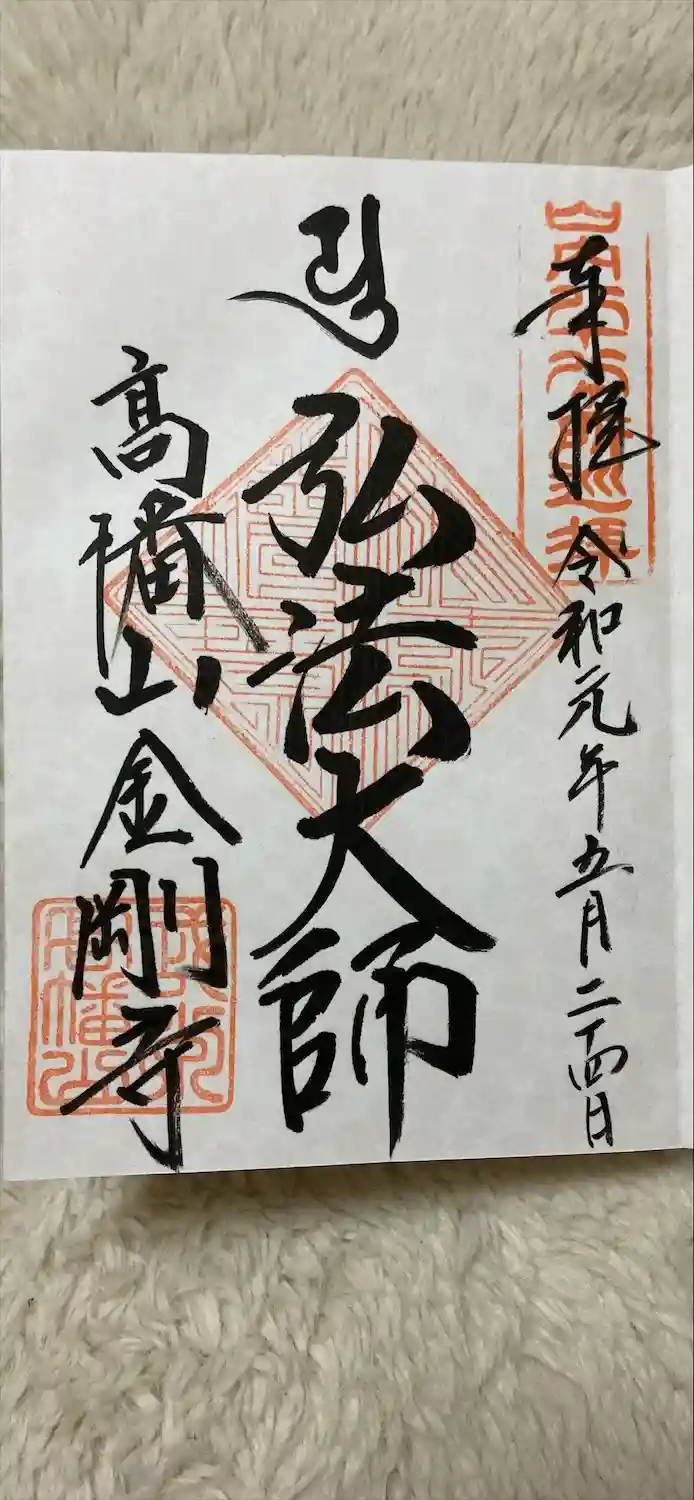 奉拝 令和元年五月二十四日
弘法大師
高幡山 金剛寺